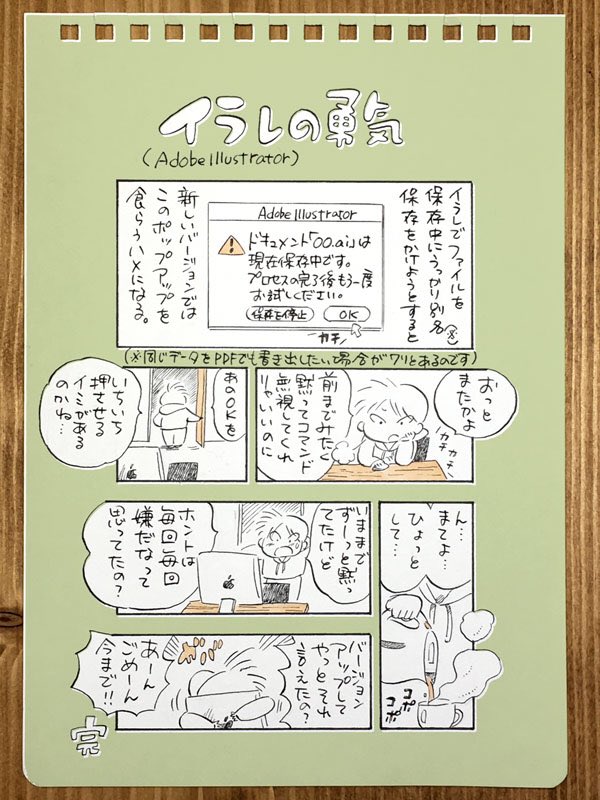 イラレの勇気
(Adobe Illustrator)
イラレでファイルを
保存中にうっかり別名(※)
保存をかけようとすると
Adobe Illustrator
ドキュメント「〇〇.ai」は
現在保存中です。
プロセスの完了後もう一度
お試しください。
保存を停止
OK
カチッ
新しいバージョンでは
このポップアップを
食らうハメになる。
(※同じデータをPDFでも書き出したいて場合がワリとあるのです)
おっと
またかよ
カチカチッ
前までみたく
黙ってコマンド
無視してくれ
りゃいいのに
あのOKを
いちいち
押させる
イミがある
のかね…
ん…
まてよ…
ひょっと
して…
コポ
コポ
いままで
ずーっと黙っ
てたけど
ホントは
毎回毎回
嫌だなって
思ってたの?
バージョン
アップして
やっとそれ
言えたの?
あーん
ごめーん
今まで!!
完